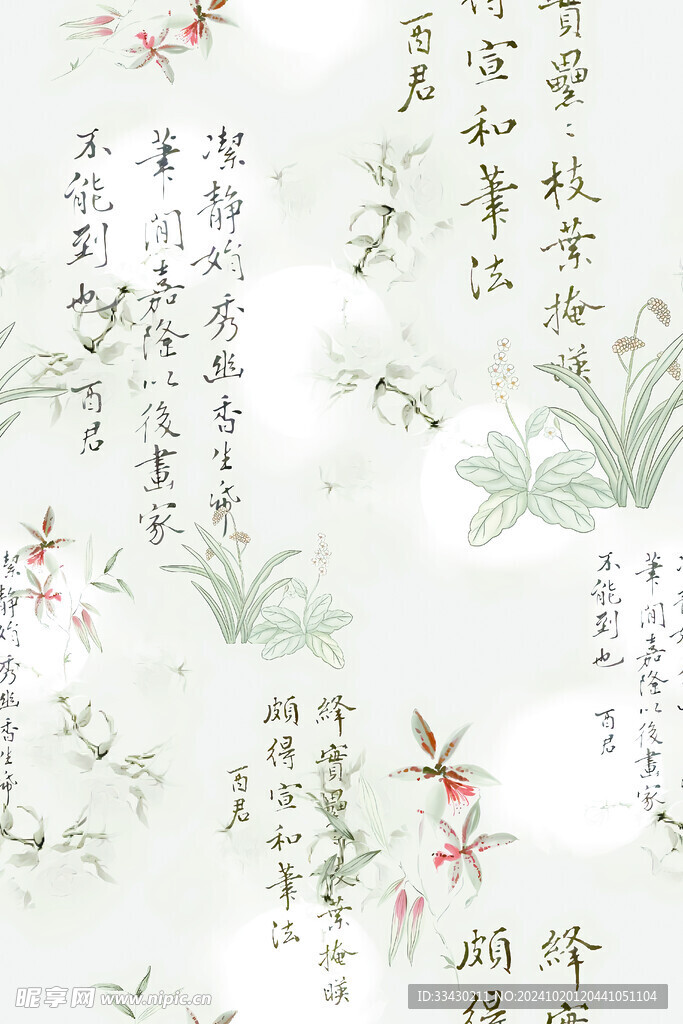 實壘〻枝葉掩暎
得宣和筆法
酉君
潔靜娟秀幽香生
筆間嘉隆以後畫家
不能到也
酉君
筆間嘉隆以後畫家
不能到也
酉君
潔靜娟秀幽香生
絳實壘〻枝葉掩暎
頗得宣和筆法
酉君
絳實
頗得
昵享网 www.nipic.cn
ID:33430211 NO:20241020120441051104